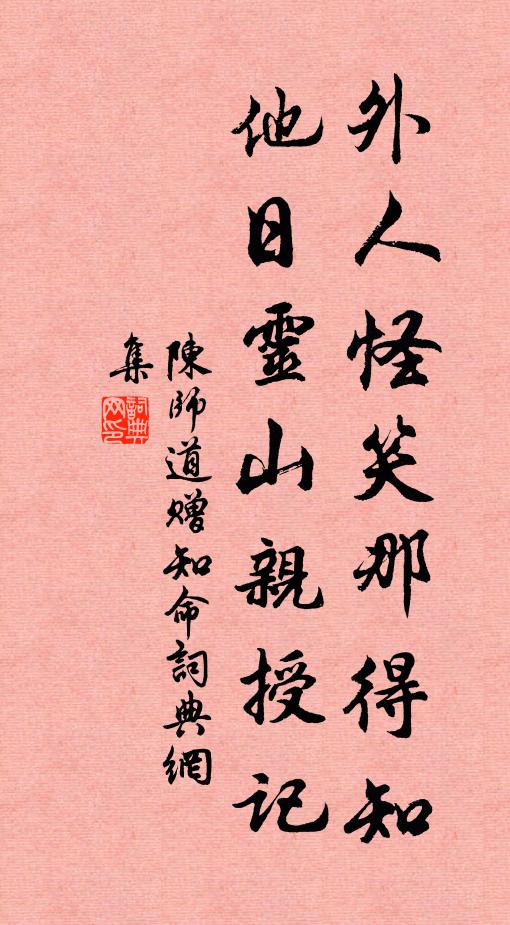 外人怪笑那得知
他日靈山親授記
陳師道贈知命詞典網
集
詞典
网印